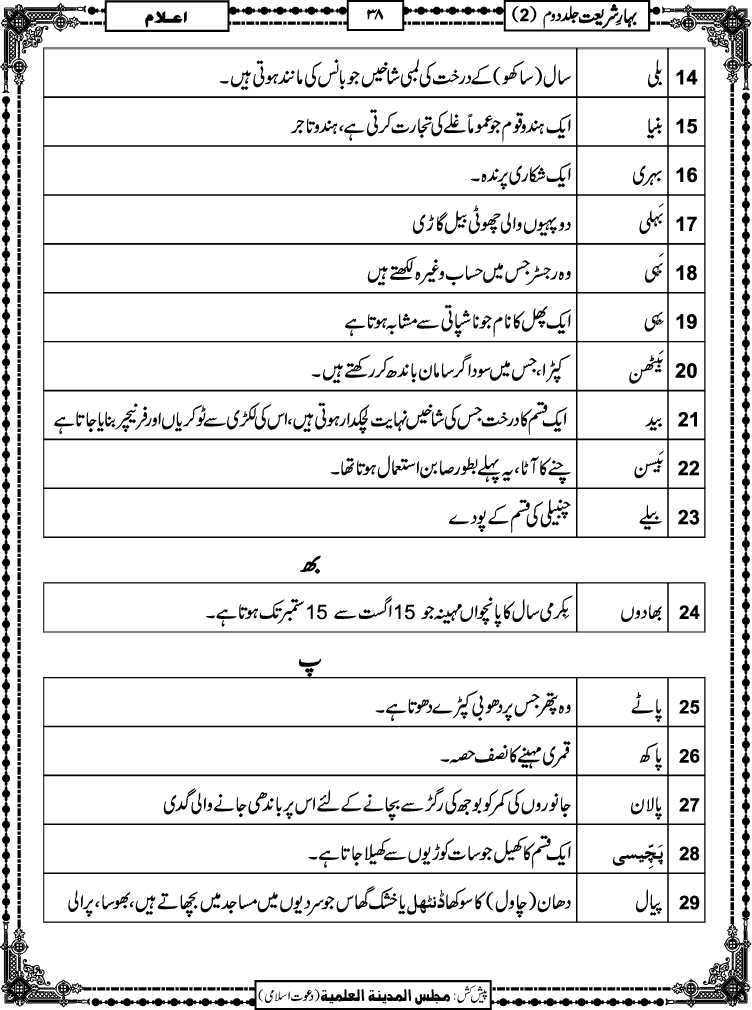 بہارِشریعت جلد دوم (2) ۳۸ اعلام
14 بلی سال (ساکھو) کے درخت کی لمبی شاخیں جو بانس کی مانند ہوتی ہیں۔
15 بنیا ایک ہندو قوم جو عموماً غلے کی تجارت کرتی ہے، ہندو تاجر
16 بہری ایک شکاری پرندہ۔
17 بَہلی دو پہیوں والی چھوٹی بیل گاڑی
18 بَہی وہ رجسٹر جس میں حساب وغیرہ لکھتے ہیں
19 بہی ایک پھل کا نام جو ناشپاتی سے مشابہ ہوتا ہے
20 بَیٹھن کپڑا، جس میں سوداگر سامان باندھ کر رکھتے ہیں۔
21 بید ایک قسم کا درخت جس کی شاخیں نہایت لچکدار ہوتی ہیں، اس کی لکڑی سے ٹوکریاں اور فرنیچر بنایا جاتا ہے
22 بَیسن چنے کا آٹا، یہ پہلے بطور صابن استعمال ہوتا تھا۔
23 بیلے چنبیلی کی قسم کے پودے
بھ
24 بھادوں بِکرمی سال کا پانچواں مہینہ جو 15 اگست سے 15 ستمبر تک ہوتا ہے۔
پ
25 پاٹے وہ پتھر جس پر دھوبی کپڑے دھوتا ہے۔
26 پاکھ قمری مہینے کا نصف حصہ۔
27 پالان جانوروں کی کمر کو بوجھ کی رگڑ سے بچانے کے لئے اس پر باندھی جانے والی گدی
28 پَچِّیسی ایک قسم کا کھیل جو سات کوڑیوں سے کھیلا جاتا ہے۔
29 پیال دھان (چاول) کا سوکھا ڈنٹھل یا خشک گھاس جو سردیوں میں مساجد میں بچھاتے ہیں، بھوسا، پرالی
پیش کش: مجلس المدینۃ العلمیۃ (دعوت اسلامی)